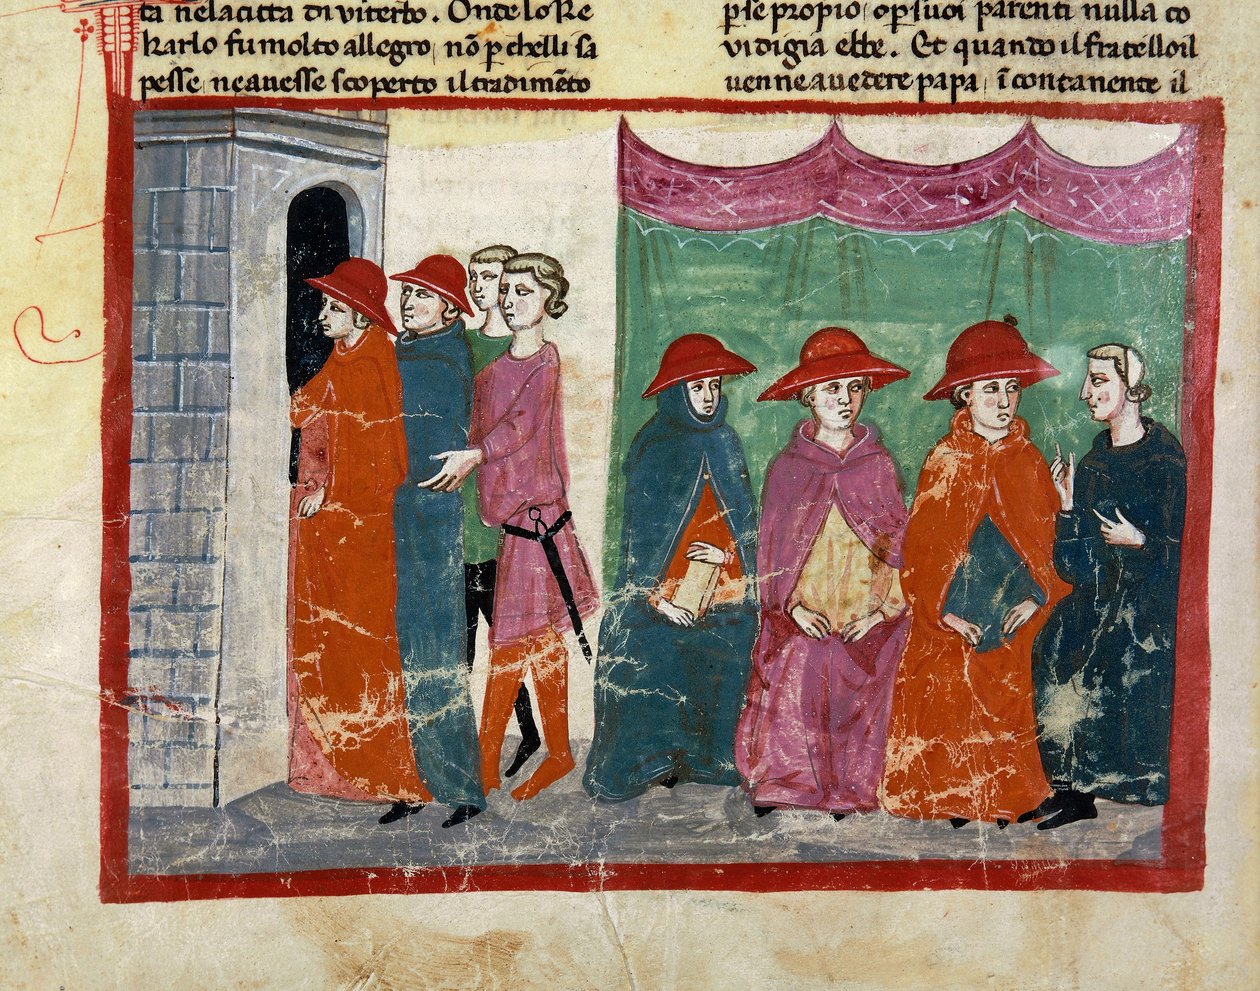 ta nela citta di viterbo. Onde lo Re
karlo fu molto allegro nō p̄ chelli sa
pesse ne avesse scoperto il tradimēto
p̄ se propio, o p̄ suoi parenti nulla co
vidigia ebbe. Et quando il fratello il
venne a vedere papa, ī contanente il